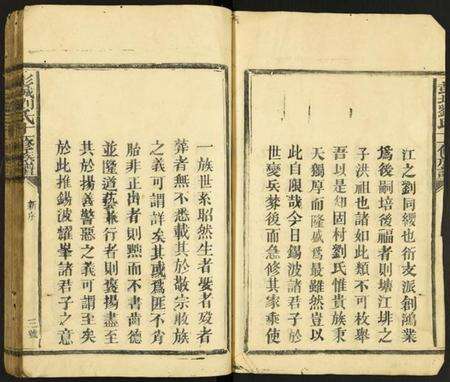 江之劉同緩也衍支派創鴻業
為後嗣培後福者則塘江坤之
子洪祖也諸如此類不可枚舉
吾以是知固村劉氏惟貴族秉
天獨厚而隆盛為最雖然豈以
此自限哉今日錫波諸君子於
世變兵燹後而急修其家乘使
一族世系昭然生者娶者歿者
葬者無不悉載其於敬宗收族
之義可謂詳矣其或為匪不肖
胎非正出者則黜而不書齒德
並隆道藝兼行者則褒揚盡至
其於揚善警惡之義可謂至矣
於此推錫波耀峯諸君子之意
彭城劉氏十修族譜
新序
三號